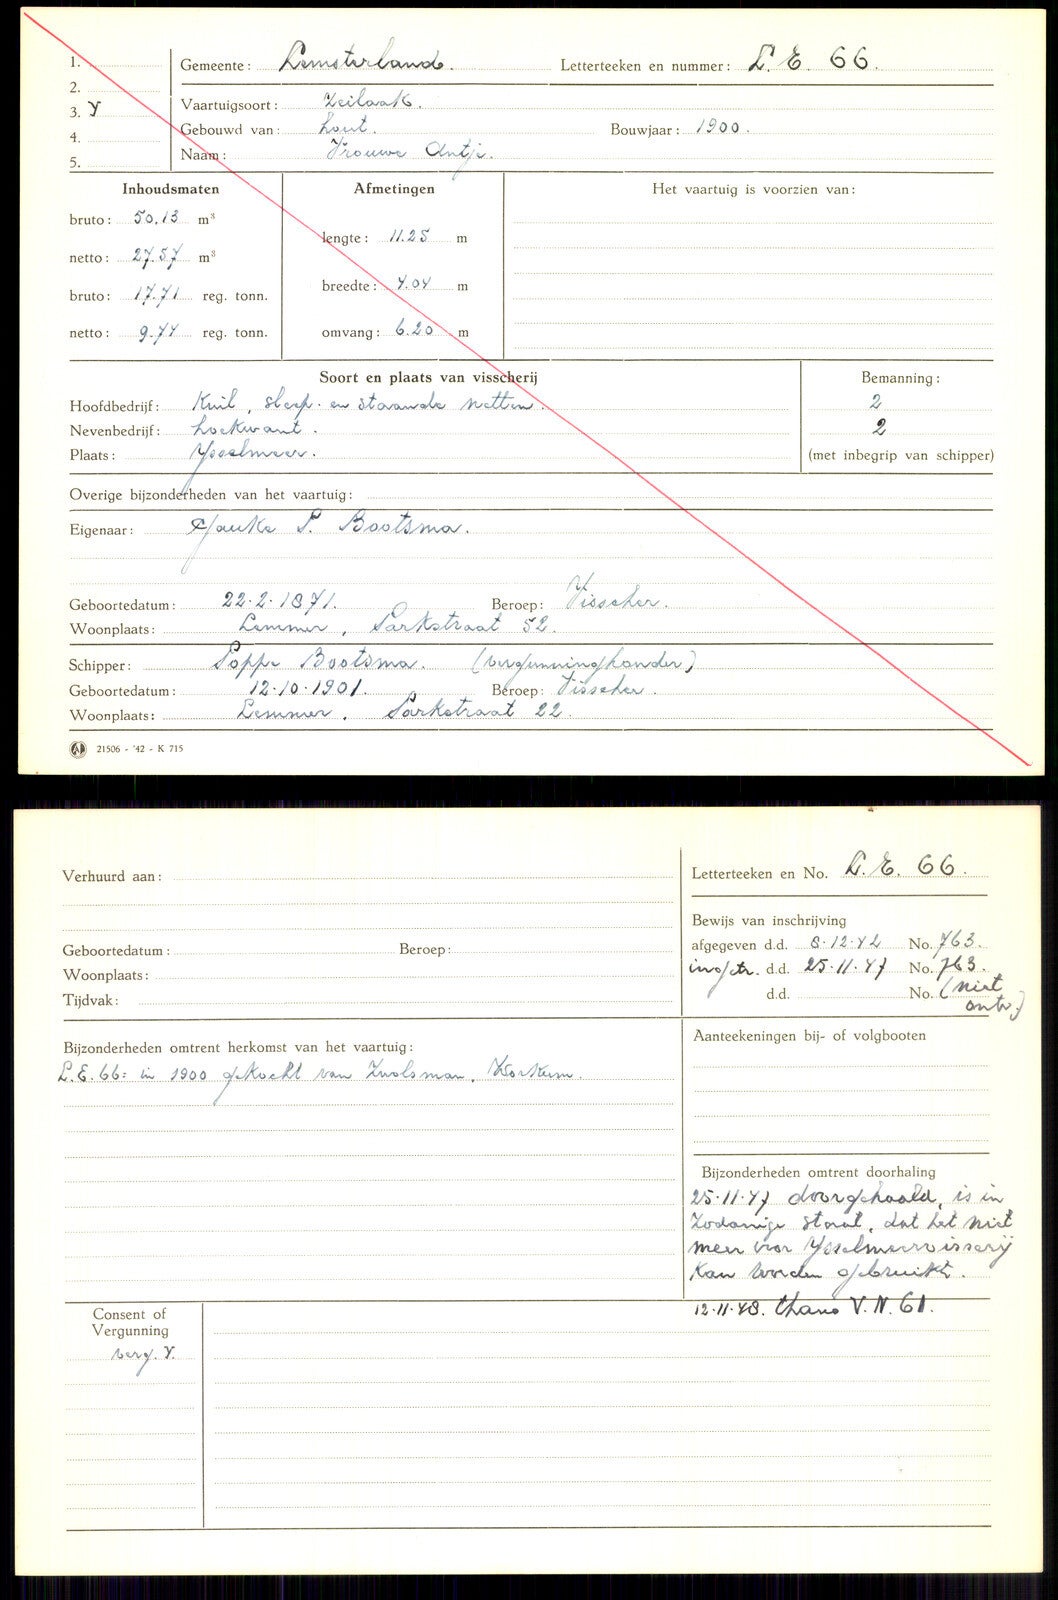 1. Gemeente: Lemsterland. Letterteeken en nummer: L. E. 66.
2.
3. Y Vaartuigsoort: Zeilaak.
4. Gebouwd van: hout. Bouwjaar: 1900.
5. Naam: Vrouwe Antje.
Inhoudsmaten Afmetingen Het vaartuig is voorzien van:
bruto: 50.13 m³
lengte: 11.25 m
netto: 27.57 m³
breedte: 4.04 m
bruto: 17.71 reg. tonn.
netto: 9.74 reg. tonn. omvang: 6.20 m
Soort en plaats van visscherij Bemanning:
Hoofdbedrijf: Kuil, sleep- en staande netten. 2
Nevenbedrijf: hoekwant. 2
Plaats: Ysselmeer. (met inbegrip van schipper)
Overige bijzonderheden van het vaartuig:
Eigenaar: Sjouke P. Bootsma.
Geboortedatum: 22.2.1871. Beroep: Visscher.
Woonplaats: Lemmer, Parkstraat 52.
Schipper: Poppe Bootsma. (vergunninghouder)
Geboortedatum: 12.10.1901. Beroep: Visscher.
Woonplaats: Lemmer, Parkstraat 22.
21506 - '42 - K 715
Verhuurd aan: Letterteeken en No. L. E. 66.
Bewijs van inschrijving
Geboortedatum: Beroep: afgegeven d.d. 8.12.42 No. 763.
Woonplaats: ingetr. d.d. 25.11.47 No. 763.
Tijdvak: d.d. No. (niet
ontv.)
Bijzonderheden omtrent herkomst van het vaartuig: Aanteekeningen bij- of volgbooten
L.E. 66: in 1900 gekocht van Zwolsman, Workum.
Bijzonderheden omtrent doorhaling
25.11.47 doorgehaald, is in
zodanige staat, dat het niet
meer voor Ysselmeervisserij
kan worden gebruikt.
12.11.48. thans V.N. 61.
Consent of
Vergunning
verg. Y.